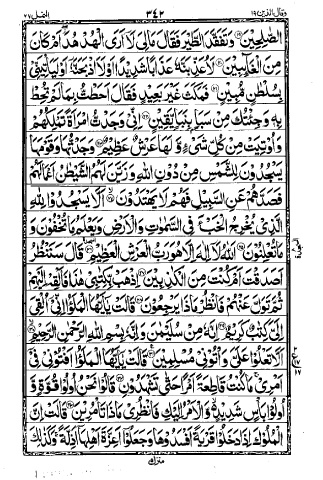 وقال الذين ١٩ ٣٤٢ النمل ٢٧
الصّٰلِحِيْنَ ۝ وَتَفَقَّدَ الطَّيْرَ فَقَالَ مَالِيَ لَآ اَرَى الْهُدْهُدَ اَمْ كَانَ
مِنَ الْغَآئِبِيْنَ ۝ لَاُعَذِّبَنَّهٗ عَذَابًا شَدِيْدًا اَوْ لَاۡاَذْبَحَنَّهٗٓ اَوْ لَيَاْتِيَنِّيْ
بِسُلْطٰنٍ مُّبِيْنٍ ۝ فَمَكَثَ غَيْرَ بَعِيْدٍ فَقَالَ اَحَطْتُّ بِمَا لَمْ تُحِطْ
بِهٖ وَجِئْتُكَ مِنْ سَبَاٍۭ بِنَبَاٍ يَّقِيْنٍ ۝ اِنِّيْ وَجَدْتُّ امْرَاَةً تَمْلِكُهُمْ
وَاُوْتِيَتْ مِنْ كُلِّ شَيْءٍ وَّلَهَا عَرْشٌ عَظِيْمٌ ۝ وَجَدْتُّهَا وَقَوْمَهَا
يَسْجُدُوْنَ لِلشَّمْسِ مِنْ دُوْنِ اللّٰهِ وَزَيَّنَ لَهُمُ الشَّيْطٰنُ اَعْمَالَهُمْ
فَصَدَّهُمْ عَنِ السَّبِيْلِ فَهُمْ لَا يَهْتَدُوْنَ ۝ اَلَّا يَسْجُدُوْا لِلّٰهِ
الَّذِيْ يُخْرِجُ الْخَبْءَ فِي السَّمٰوٰتِ وَالْاَرْضِ وَيَعْلَمُ مَا تُخْفُوْنَ وَ
مَا تُعْلِنُوْنَ ۝ اَللّٰهُ لَآ اِلٰهَ اِلَّا هُوَ رَبُّ الْعَرْشِ الْعَظِيْمِ ۝ قَالَ سَنَنْظُرُ
اَصَدَقْتَ اَمْ كُنْتَ مِنَ الْكٰذِبِيْنَ ۝ اِذْهَبْ بِّكِتٰبِيْ هٰذَا فَاَلْقِهْ اِلَيْهِمْ
ثُمَّ تَوَلَّ عَنْهُمْ فَانْظُرْ مَاذَا يَرْجِعُوْنَ ۝ قَالَتْ يٰٓاَيُّهَا الْمَلَؤُا اِنِّيْٓ اُلْقِيَ
اِلَيَّ كِتٰبٌ كَرِيْمٌ ۝ اِنَّهٗ مِنْ سُلَيْمٰنَ وَاِنَّهٗ بِسْمِ اللّٰهِ الرَّحْمٰنِ الرَّحِيْمِ ۝
اَلَّا تَعْلُوْا عَلَيَّ وَاْتُوْنِيْ مُسْلِمِيْنَ ۝ قَالَتْ يٰٓاَيُّهَا الْمَلَؤُا اَفْتُوْنِيْ فِيْٓ
اَمْرِيْ ۚ مَا كُنْتُ قَاطِعَةً اَمْرًا حَتّٰى تَشْهَدُوْنِ ۝ قَالُوْا نَحْنُ اُولُوْا قُوَّةٍ وَّ
اُولُوْا بَاْسٍ شَدِيْدٍ ۙ وَّالْاَمْرُ اِلَيْكِ فَانْظُرِيْ مَاذَا تَاْمُرِيْنَ ۝ قَالَتْ اِنَّ
الْمُلُوْكَ اِذَا دَخَلُوْا قَرْيَةً اَفْسَدُوْهَا وَجَعَلُوْٓا اَعِزَّةَ اَهْلِهَآ اَذِلَّةً ۚ وَكَذٰلِكَ
منزل